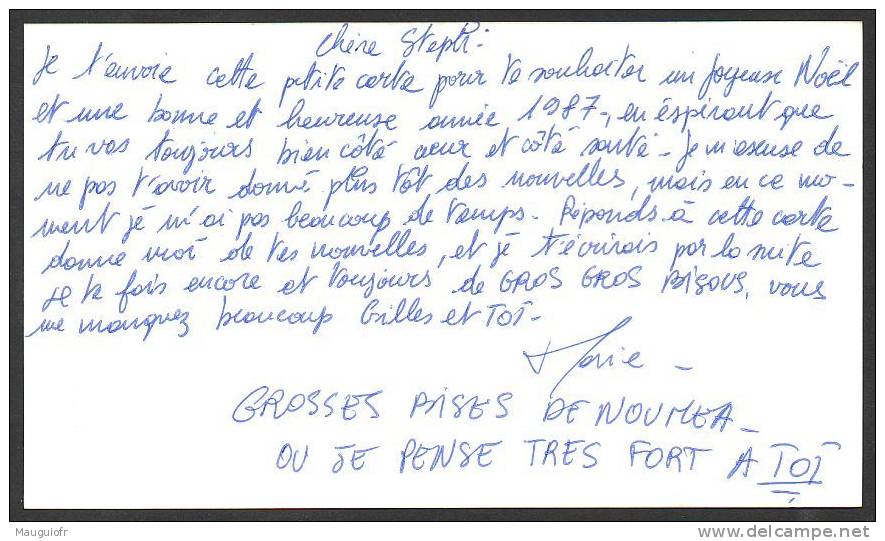 Chère Steph:
Je t'envoie cette petite carte pour te souhaiter un joyeux Noël
et une bonne et heureuse année 1987-, en éspérant que
tu vas toujours bien côté cœur et côté santé - Je m'excuse de
ne pas t'avoir donné plus tôt des nouvelles, mais en ce mo-
ment je n'ai pas beaucoup de temps - Réponds à cette carte
donne moi de tes nouvelles, et je t'écrirais par la suite
Je te fais encore et toujours de GROS GROS BISOUS, vous
me manquez beaucoup Gilles et TOI -
Marie -
GROSSES BISES DE NOUMEA -
OU JE PENSE TRES FORT A TOI
Mauguiofr
delcampe.net